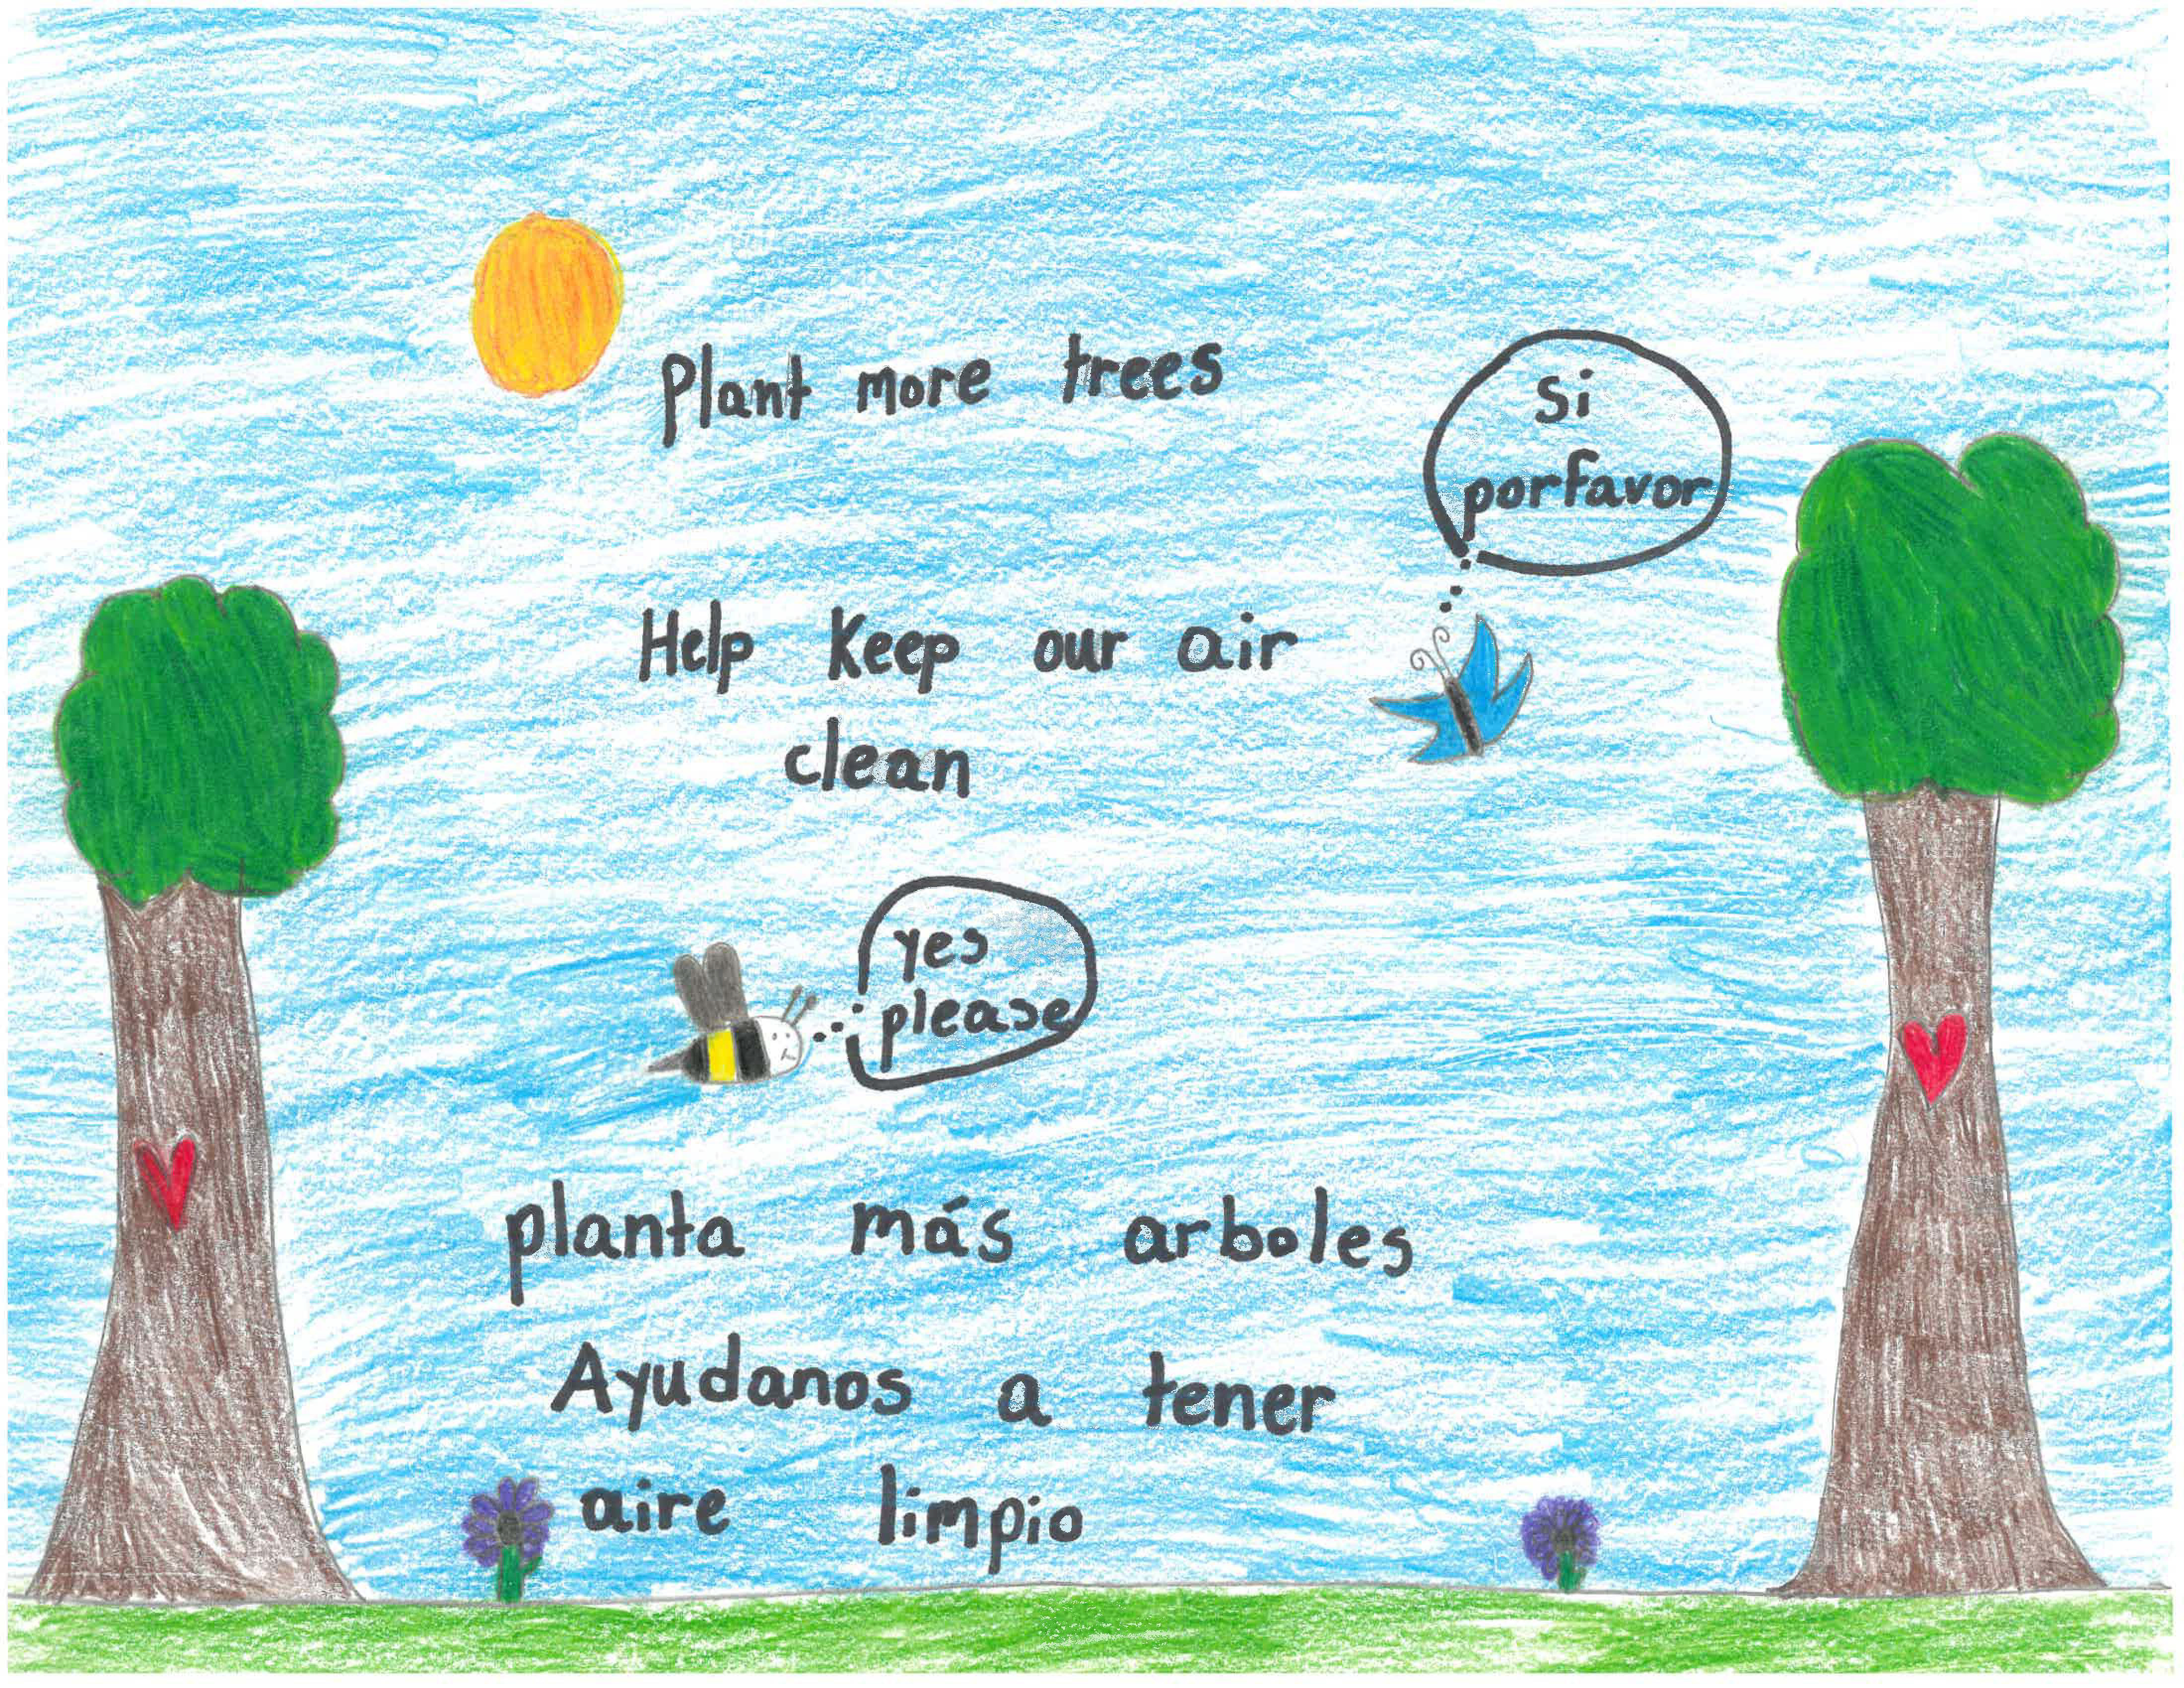 Plant more trees
Si
porfavor
Help Keep our air
clean
yes
please
planta más arboles
Ayudanos a tener
aire limpio